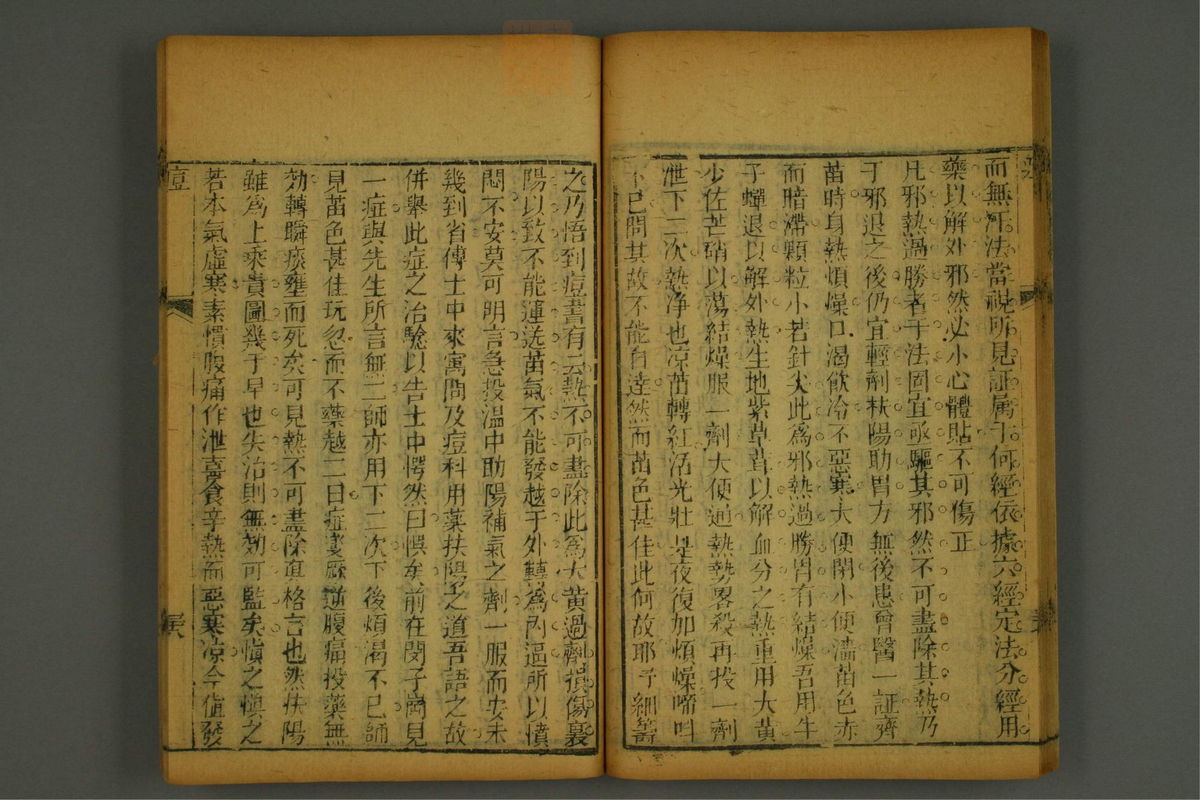 而無汗法當視所見証属于何經依據六經定法分經用
藥以解外邪然必小心體貼不可傷正
凡邪熱過勝者于法固宜亟驅其邪然不可盡除其熱乃
于邪退之後仍宜輕劑扶陽助胃方無後患曾醫一証齊
苗時身熱煩燥口渴飲冷不惡寒大便閉小便濇苗色赤
而暗滯顆粒小若針尖此爲邪熱過勝胃有結燥吾用牛
子蟬退以解外熱生地紫草茸以解血分之熱重用大黄
少佐芒硝以蕩結燥服一劑大便通熱勢畧殺再投一劑
泄下二次熱净也凉苗轉紅活光壯是夜復加煩燥啼呌
不已問其故不能自達然而苗色甚佳此何故耶予細籌
之乃悟到痘書有云熱不可盡除此爲大黄過劑損傷裏
陽以致不能運送苗氣不能發越于外轉為内逼所以憤
悶不安莫可明言急投温中助陽補氣之劑一服而安未
幾到省傅士中來寓問及痘科用藥扶陽之道吾語之故
併舉此症之治驗以告士中愕然曰悞矣前在閔子崗見
一症與先生所言無二師亦用下二次下後煩渴不已誦
見苗色甚佳玩忽而不藥越二日症變厥逆腹痛投藥無
効轉瞬痰壅而死矣可見熱不可盡除眞格言也然扶陽
雖爲上乘貴圖幾于早也失治則無効可監矣愼之愼之
若本氣虛寒素慣腹痛作泄喜食辛熱而惡寒凉今值發
痘